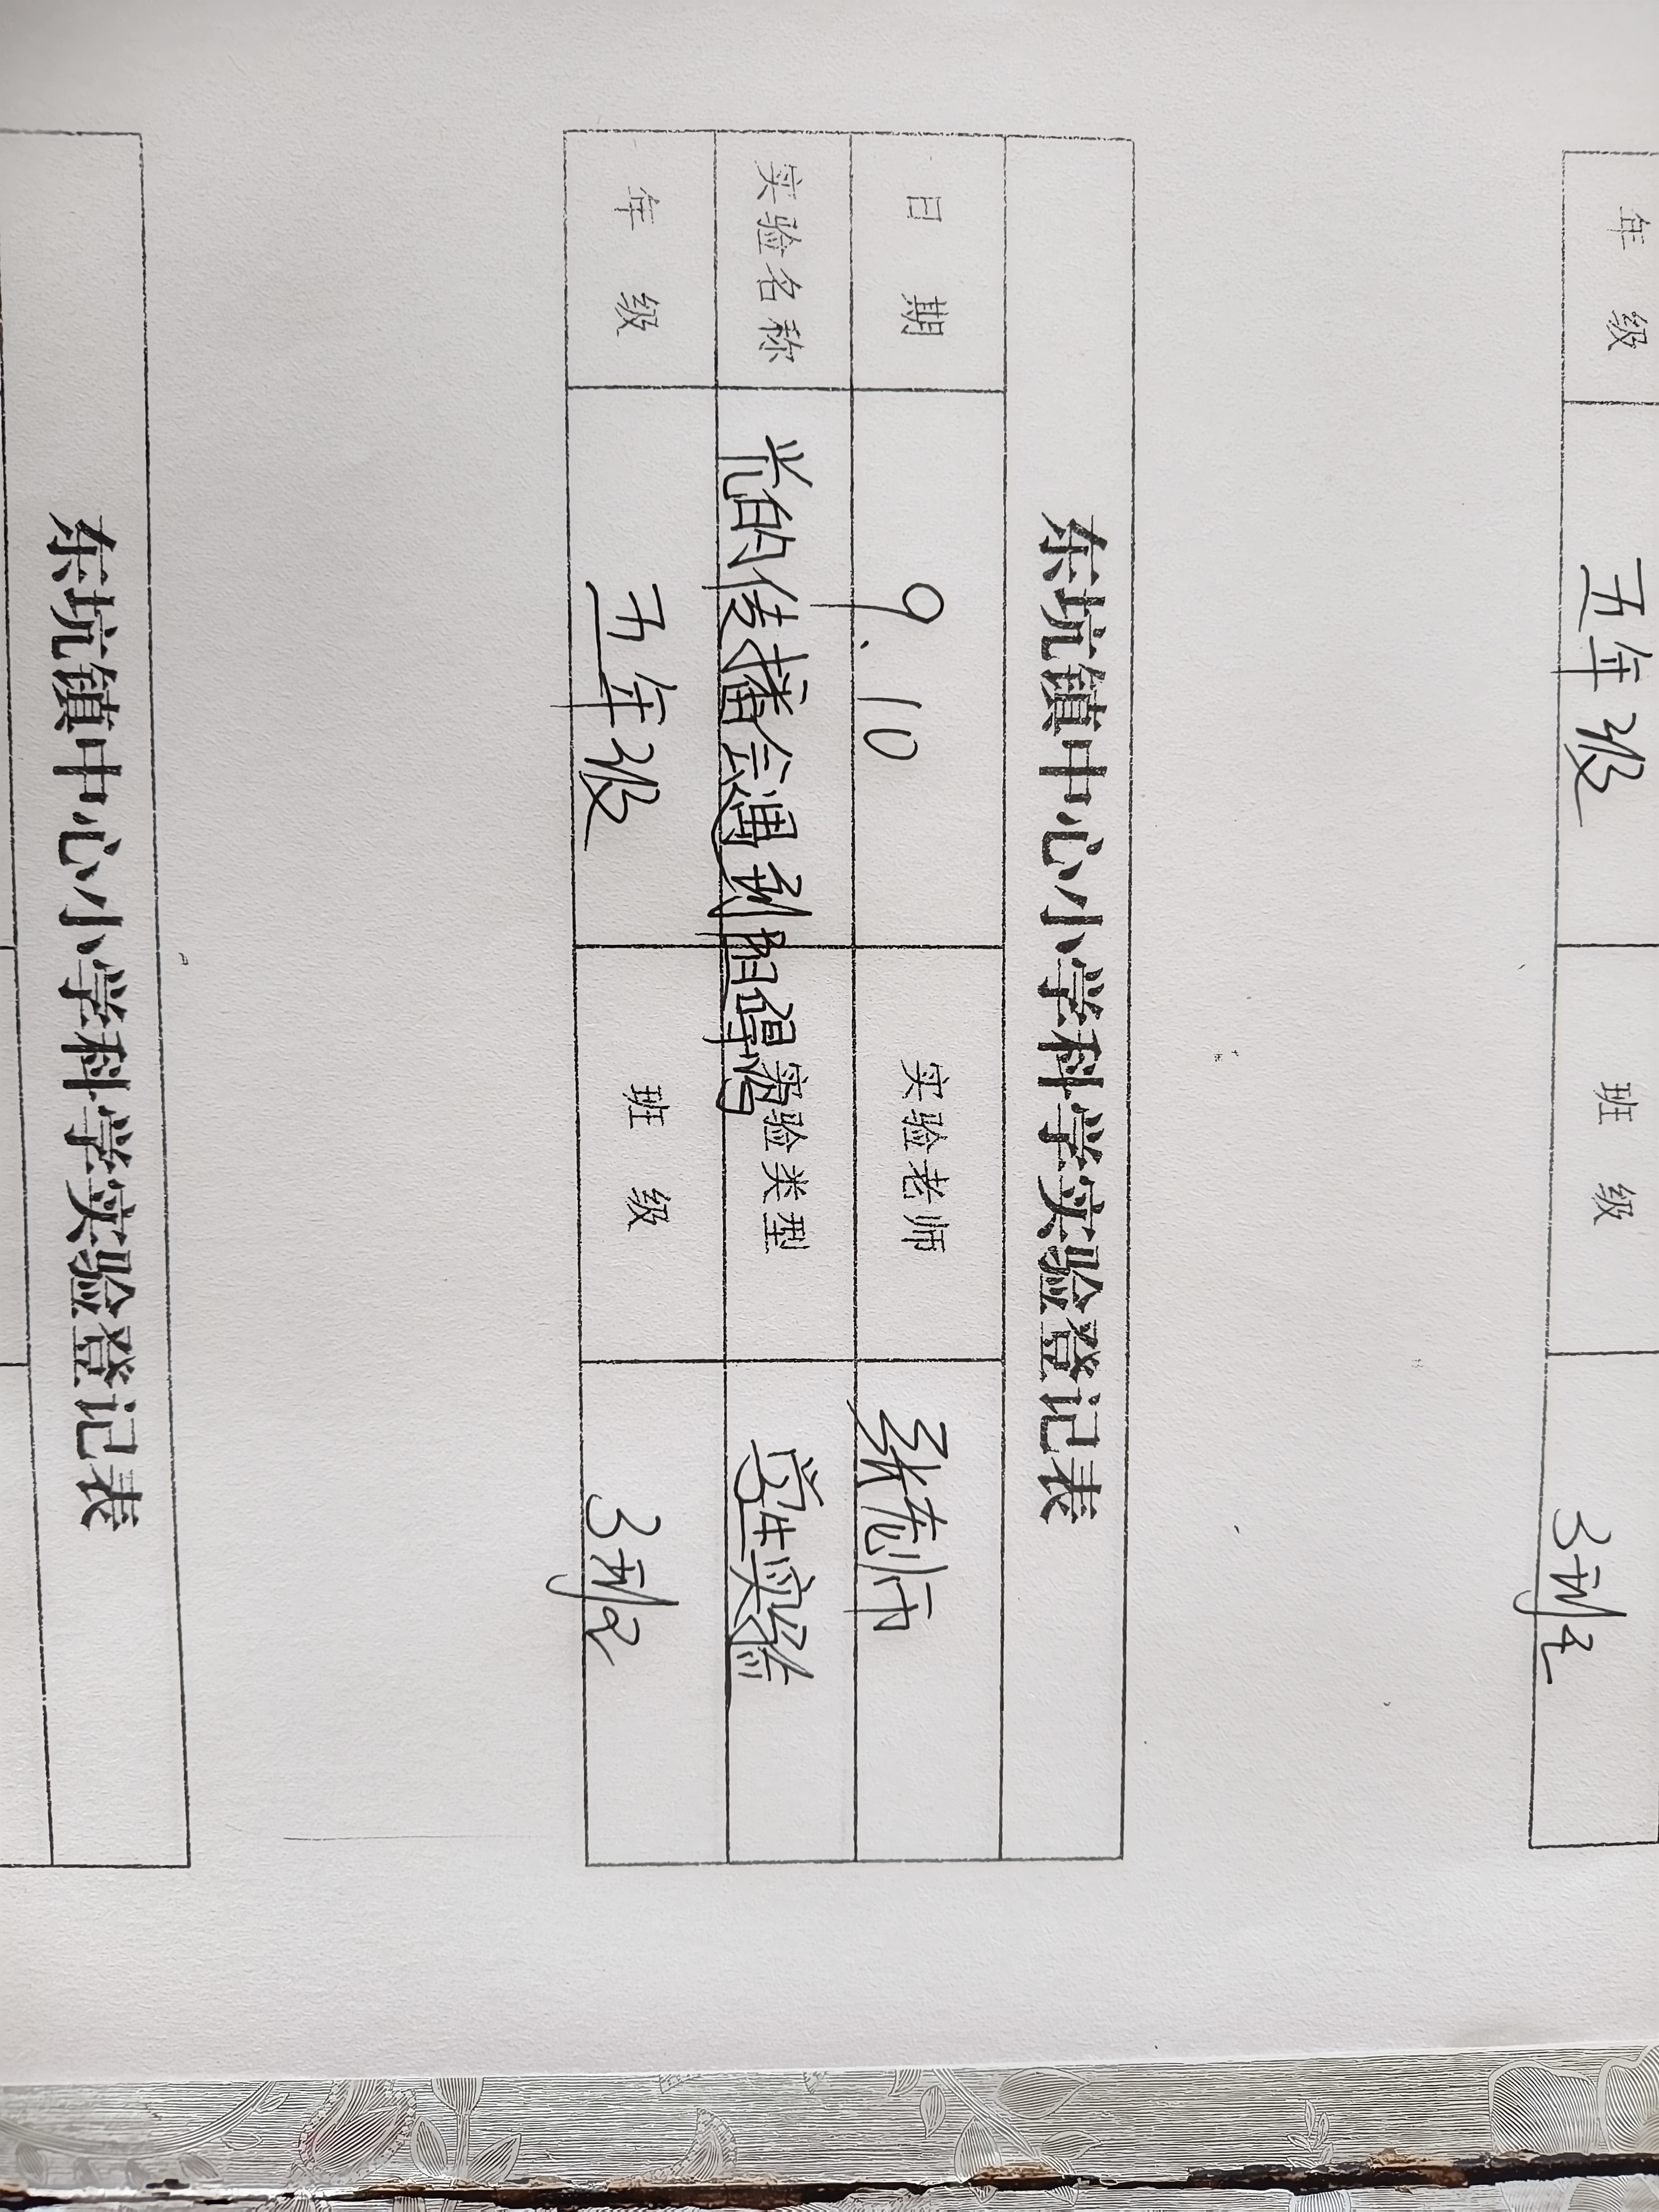 年 级 五年级 班 级 3班
东坑镇中心小学科学实验登记表
日 期 9.10 实验老师 张老师
实验名称 光的传播会遇到阻碍吗 实验类型 学生实验
年 级 五年级 班 级 3班
东坑镇中心小学科学实验登记表